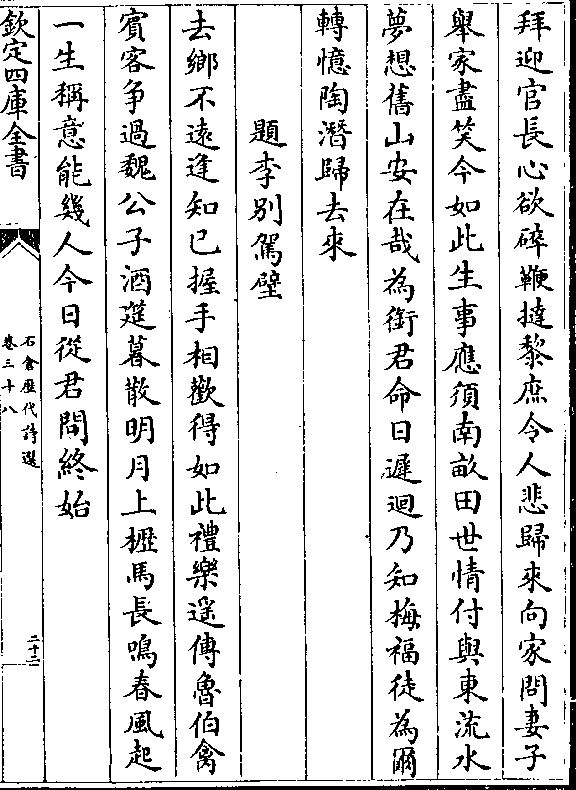 拜迎官長心欲碎鞭撻黎庶令人悲歸來向家問妻子
舉家盡笑今如此生事應須南畝田世情付與東流水
夢想舊山安在哉為銜君命日遲迴乃知梅福徒為爾
轉憶陶潛歸去來
題李別駕壁
去鄉不遠逢知已握手相歡得如此禮樂遥傳魯伯禽
賓客争過魏公子酒筵暮散明月上櫪馬長鳴春風起
一生稱意能幾人今日從君問終始
欽定四庫全書
石倉歷代詩選
卷三十八
二十二